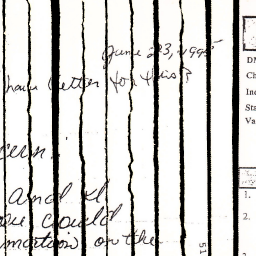 June 23, 1995
have letter for this?
cern:
and I
we could
mation on the
51
DM
Ch
In
Sta
Va
1.
2.